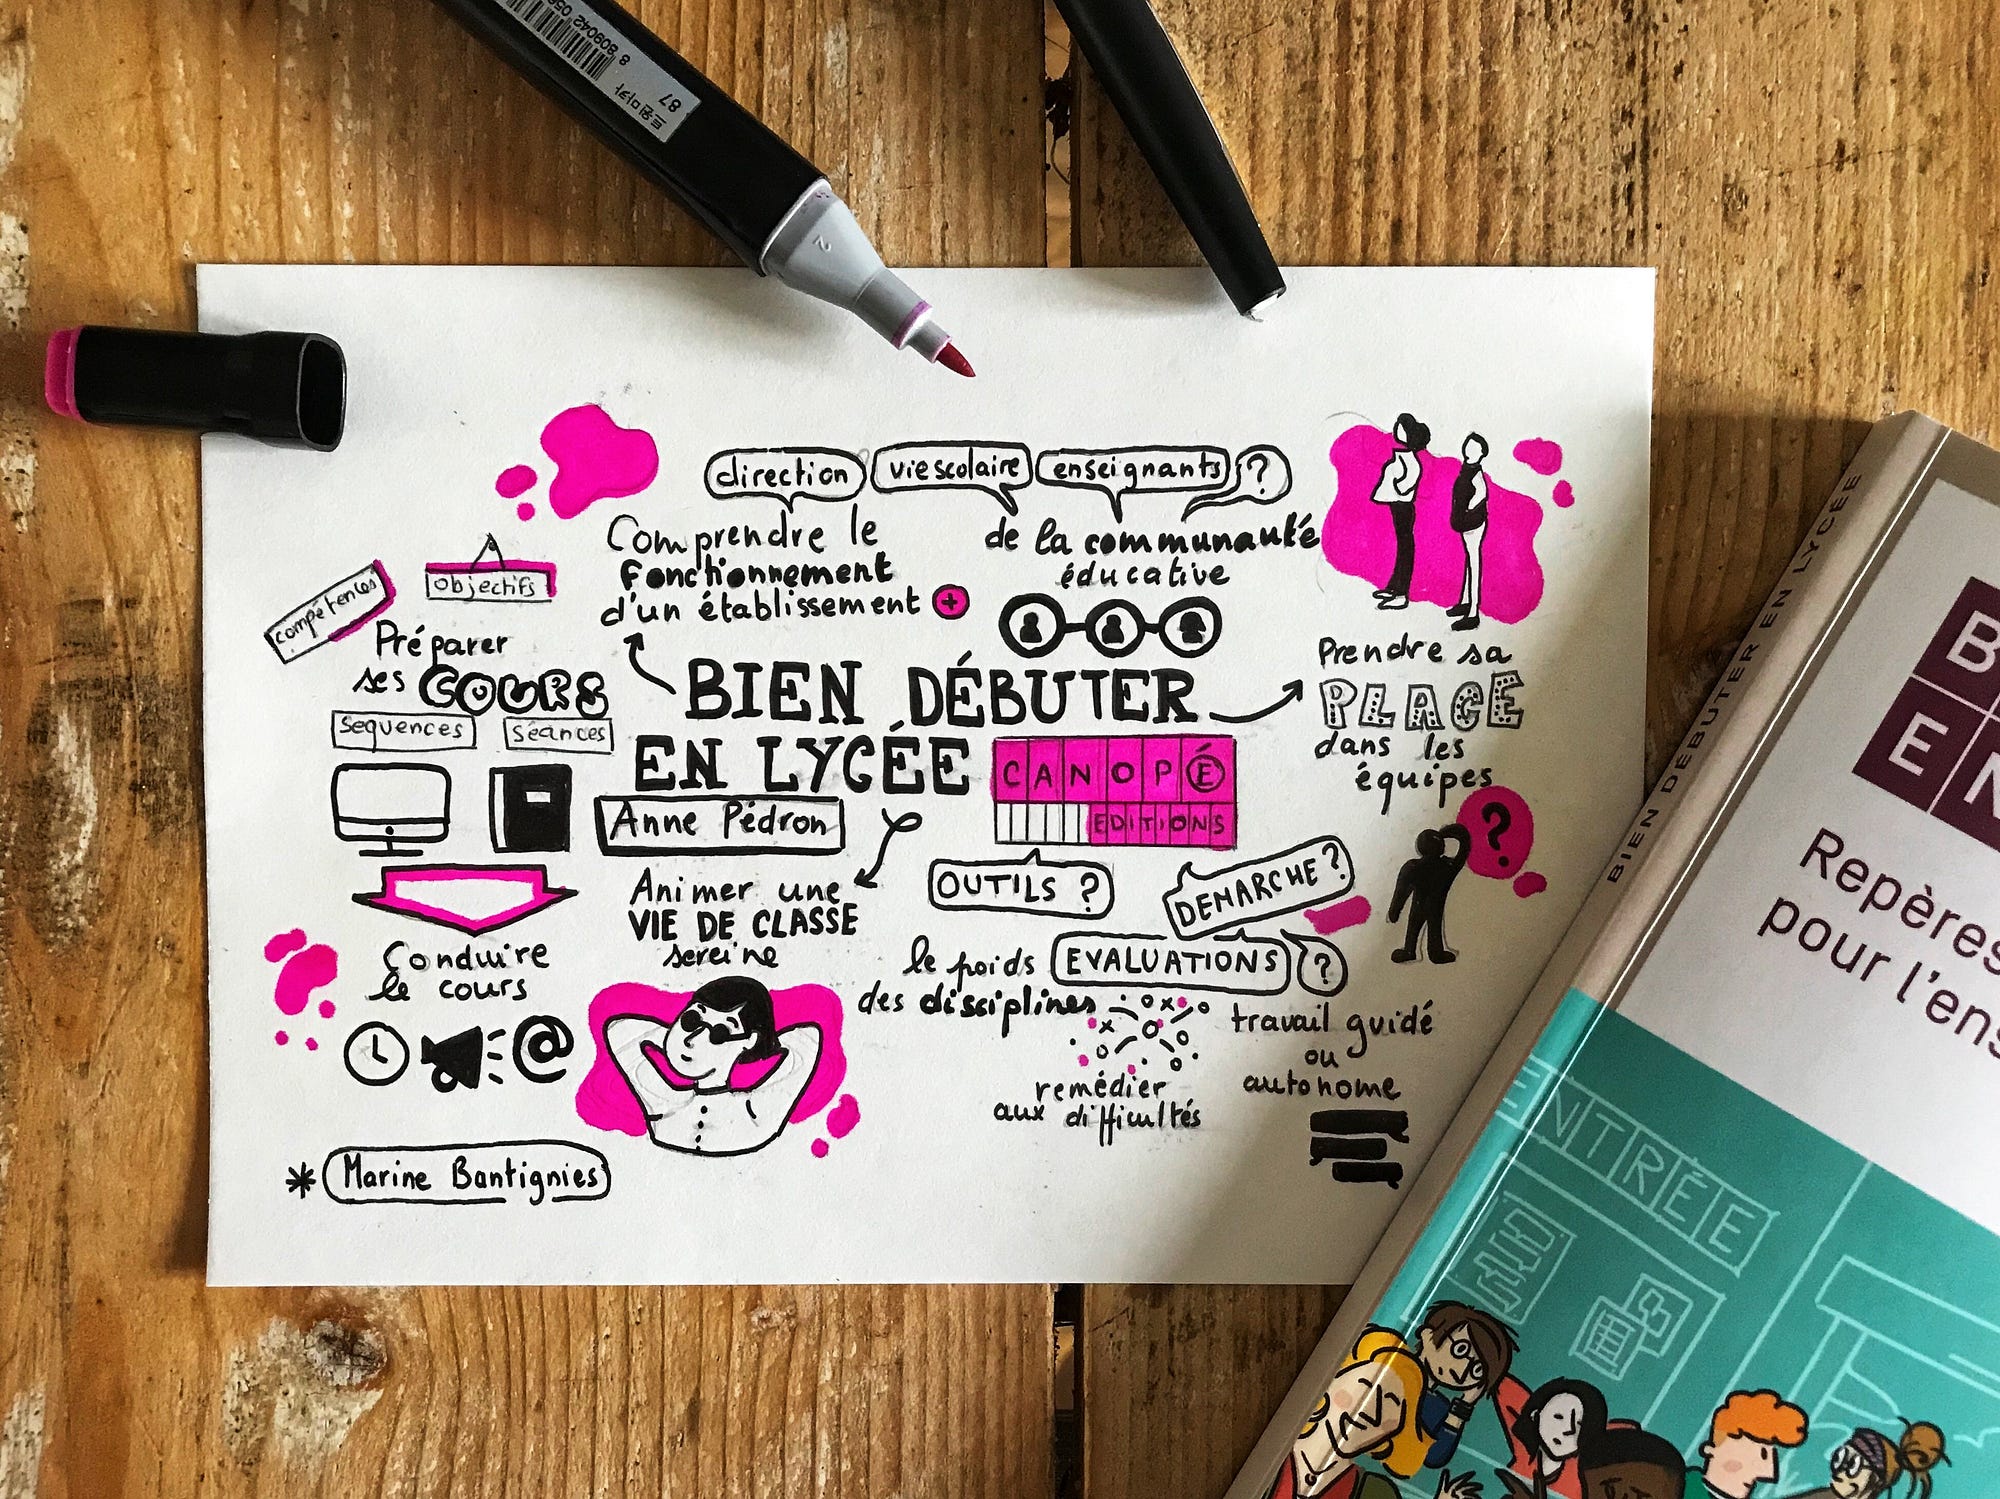 8 809042
87
2
direction
vie scolaire
enseignants
?
Comprendre le
fonctionnement
d'un établissement +
de la communauté
éducative
compétences
objectifs
Préparer
ses COURS
Sequences
Séances
BIEN DÉBUTER
EN LYCÉE
CANOPÉ
EDITIONS
Anne Pédron
Prendre sa
PLACE
dans les
équipes
?
Animer une
VIE DE CLASSE
sereine
OUTILS ?
DEMARCHE ?
Conduire
le cours
@
le poids
des disciplines
EVALUATIONS
?
remédier
aux difficultés
travail guidé
ou
autonome
* Marine Bantignies
BIEN DÉBUTER EN LYCÉE
B
EN
Repères
pour l'ens
ENTRÉE